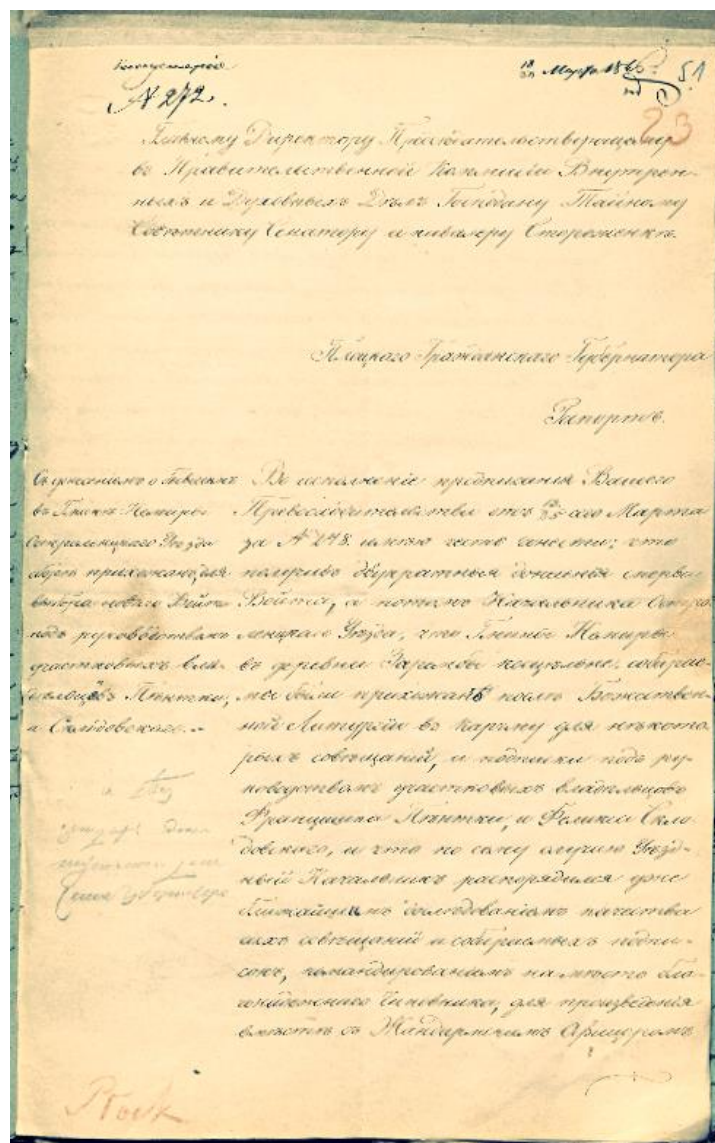 № 272.
18/30 Марта
51
23
Главному Директору Предсѣдательствующему
въ Правительственной Коммисіи Внутрен-
нихъ и Духовныхъ Дѣлъ Господину Тайному
Совѣтнику Сенатору и кавалеру Стороженкѣ.
Плоцкаго Гражданскаго Губернатора
Рапортъ.
Съ донесеніемъ о бывшемъ
въ Гминѣ
Остроленцкаго Уѣзда
сборѣ прихожанъ для
выбора новаго Войта
подъ руководствомъ
участковыхъ вла-
дѣльцевъ Пѣнтки,
и Склодовскаго.
Во исполненіе предписанія Вашего
Превосходительства отъ 13/25 сего Марта
за № 278. имѣю честь донести: что
получивъ двукратныя донесенія сперва
Войта, а потомъ Начальника Остро-
ленцкаго Уѣзда, что Гмины
въ деревни Зарембы косцѣльне, собирае-
мы были прихожанѣ послѣ Божествен-
ной Литургіи въ карчму для нѣкото-
рыхъ совѣщаній, и подписки подъ ру-
ководствомъ участковыхъ владѣльцевъ
Францишка Пѣнтки, и Феликса Скло-
довскаго, и что по сему случаю Уѣзд-
ный Начальникъ распорядился уже
ближайшимъ дослѣдованіемъ качества
сихъ совѣщаній и собираемыхъ подпи-
сокъ, командированіемъ на мѣсто бла-
гонадежнаго Чиновника, для произведенія
вмѣстѣ съ Жандармскимъ Офицеромъ
Płock